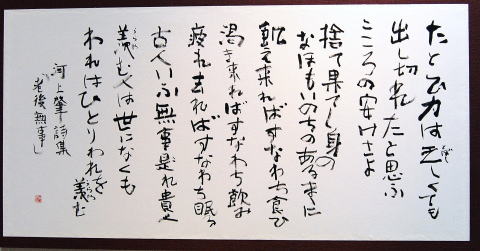 たとひ力は乏しくても
出し切ったと思ふ
こころの安けさよ
捨て果てし身の
なほもいのちのあるまにまに
飢え来ればすなわち食ひ
渇き来ればすなわち飲み
疲れ去ればすなわち眠る
古人いふ無事是れ貴人
羨む人は世になくも
われはひとりわれを羨む
河上肇詩集
「老後無事」